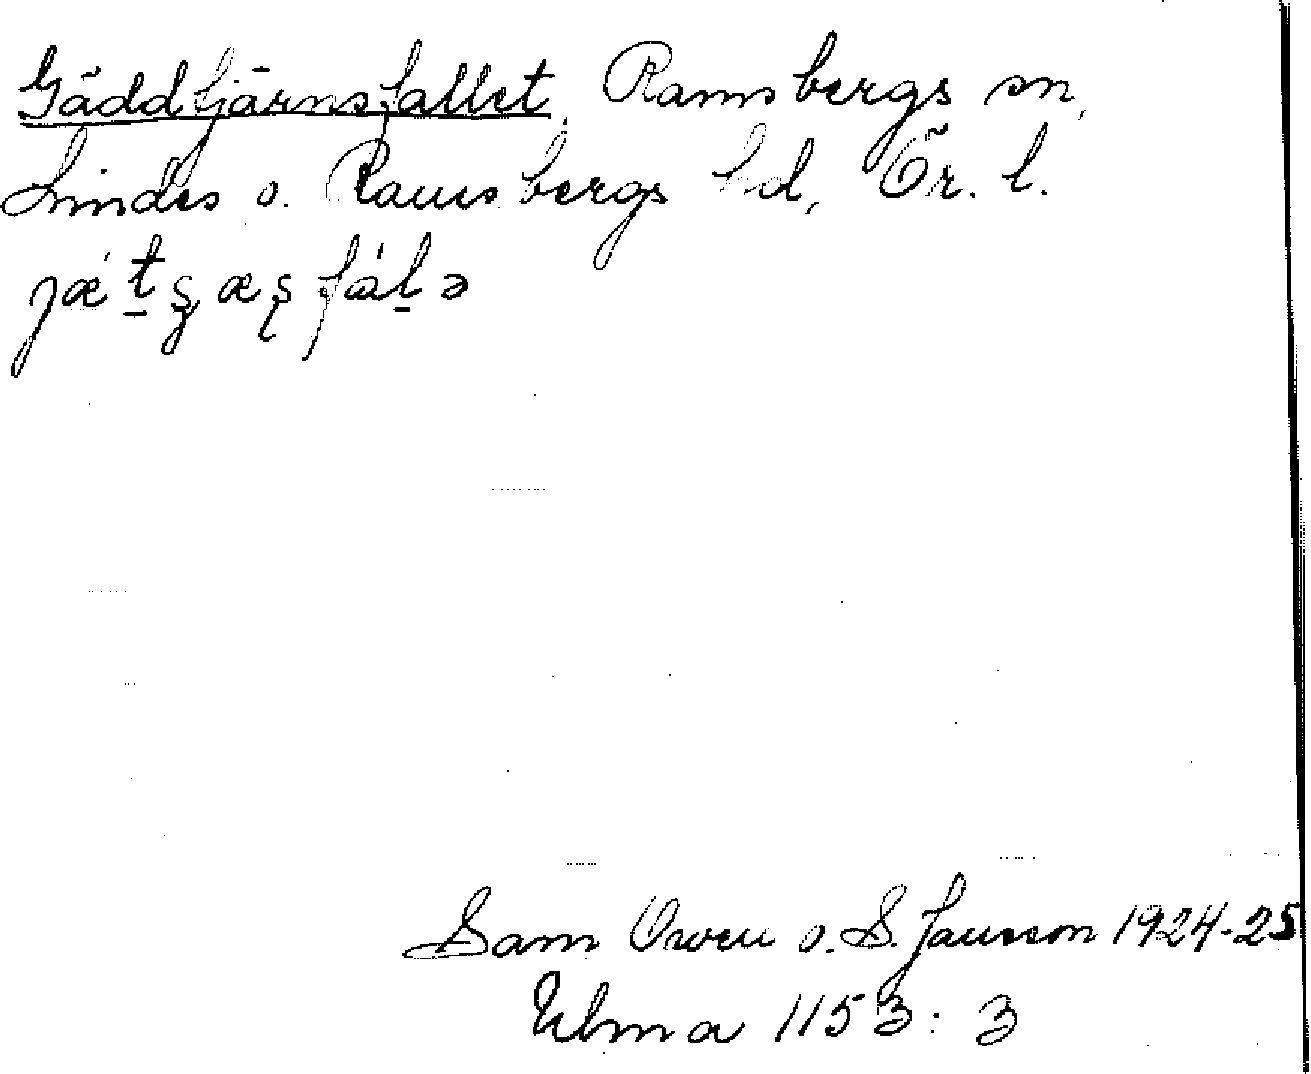 Gäddtjärnsfallet, Ramsbergs sn,
Lindes o. Ramsbergs hd, Ör. l.
Sam Owen o. S. Jansson 1924-25
Ulma 1153:3